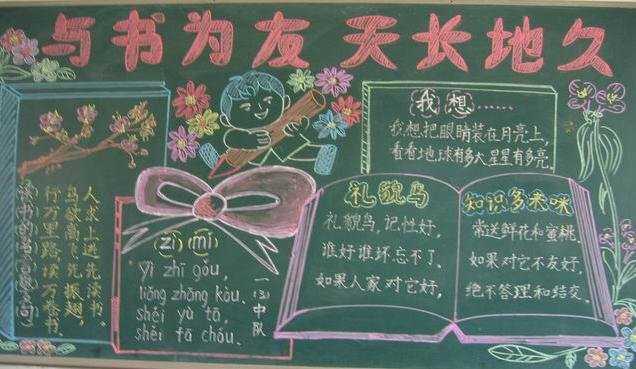 与书为友 天长地久
读书的名言名句
行万里路,读万卷书.
鸟欲高飞先振翅,
人求上进先读书。
(zì) (mí)
yì zhī gǒu,
liǎng zhāng kǒu.
shéi yù tā,
shéi fā chóu.
一(3)中队
我想......
我想把眼睛装在月亮上,
看看地球有多大星星有多亮.
礼貌鸟
礼貌鸟,记性好,
谁好谁坏忘不了.
如果人家对它好,
知识多来咪
常送鲜花和蜜桃.
如果对它不友好,
绝不答理和结交.